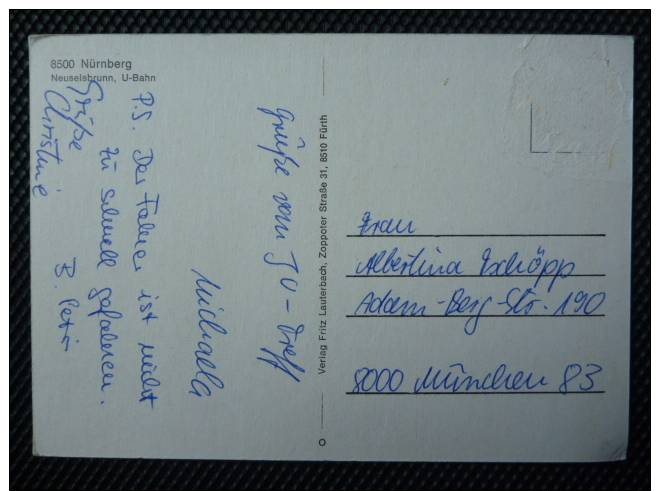 8500 Nürnberg
Neuselsbrunn, U-Bahn
Grüße vom JU-Treff
Michaela
P.S. Der Fahrer ist nicht
zu schnell gefahren.
Grüße
Christine
Verlag Fritz Lauterbach, Zoppoter Straße 31, 8510 Fürth
Frau
Albertina
Adam-Berg-Str. 190
8000 München 83